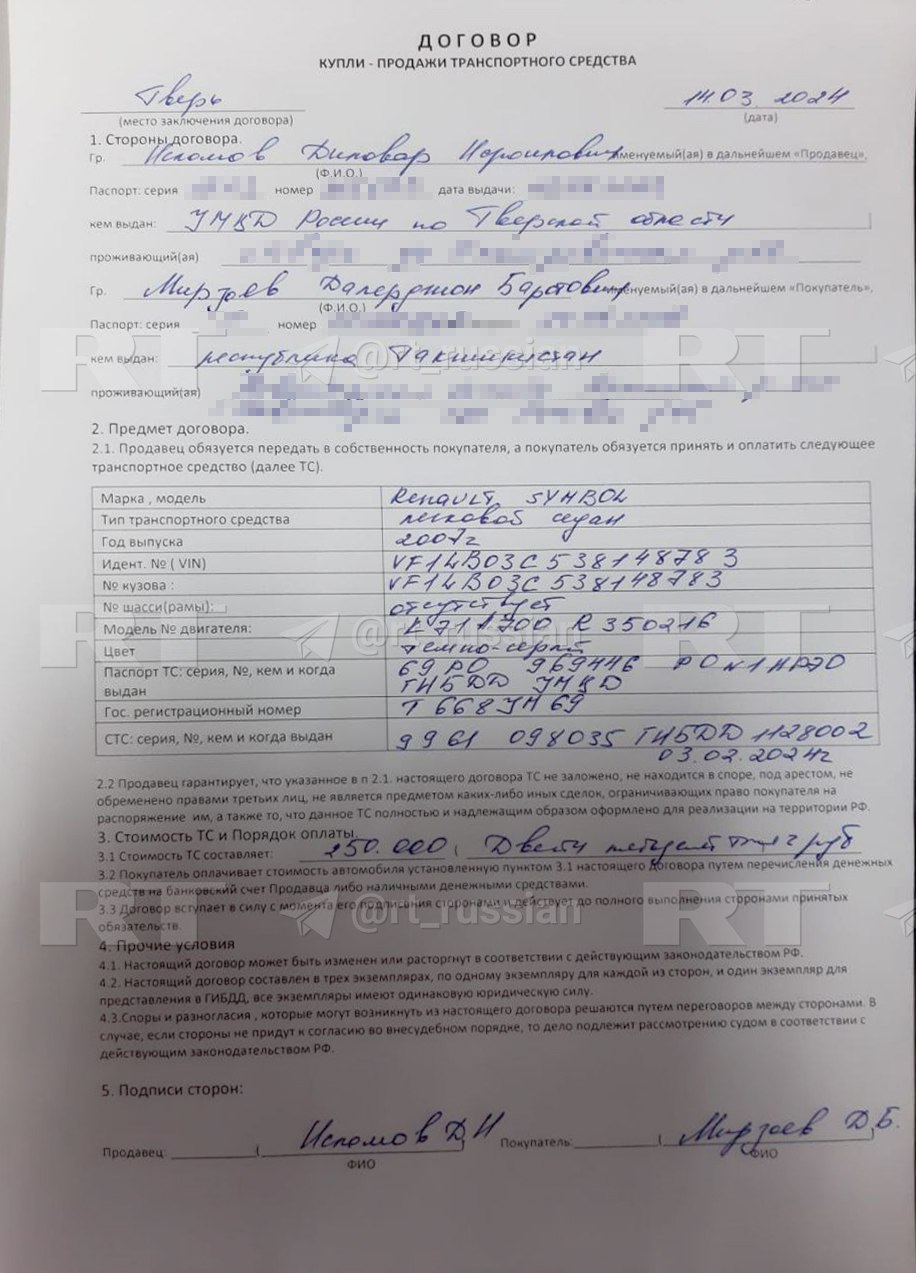 ДОГОВОР
КУПЛИ - ПРОДАЖИ ТРАНСПОРТНОГО СРЕДСТВА
Тверь 14.03. 2024
(место заключения договора) (дата)
1. Стороны договора.
Гр. Исломов Диловар именуемый(ая) в дальнейшем «Продавец»,
(Ф.И.О.)
Паспорт: серия номер дата выдачи:
кем выдан: УМВД России по Тверской области
проживающий(ая)
Гр. Мирзоев Далерджон Баротович именуемый(ая) в дальнейшем «Покупатель»,
(Ф.И.О.)
Паспорт: серия номер
кем выдан: республика Таджикистан
проживающий(ая)
2. Предмет договора.
2.1. Продавец обязуется передать в собственность покупателя, а покупатель обязуется принять и оплатить следующее
транспортное средство (далее ТС).
Марка , модель Renault SYMBOL
Тип транспортного средства легковой седан
Год выпуска 2007г
Идент. № ( VIN) VF1LB03C538148783
№ кузова : VF1LB03C538148783
№ шасси(рамы): отсутствует
Модель № двигателя: R350216
Цвет Темно-серый
Паспорт ТС: серия, №, кем и когда 69РО 969446
выдан УМВД
Гос. регистрационный номер Т 668 УМ 69
СТС: серия, №, кем и когда выдан 9961 098035 1128002
03.02.2024г
2.2 Продавец гарантирует, что указанное в п 2.1. настоящего договора ТС не заложено, не находится в споре, под арестом, не
обременено правами третьих лиц, не является предметом каких-либо иных сделок, ограничивающих право покупателя на
распоряжение им, а также то, что данное ТС полностью и надлежащим образом оформлено для реализации на территории РФ.
3. Стоимость ТС и Порядок оплаты.
3.1 Стоимость ТС составляет: 250.000 ( Двести пятьдесят руб
3.2 Покупатель оплачивает стоимость автомобиля установленную пунктом 3.1 настоящего договора путем перечисления денежных
средств на банковский счет Продавца либо наличными денежными средствами.
3.3 Договор вступает в силу с момента его подписания сторонами и действует до полного выполнения сторонами принятых
обязательств.
4. Прочие условия
4.1. Настоящий договор может быть изменен или расторгнут в соответствии с действующим законодательством РФ.
4.2. Настоящий договор составлен в трех экземплярах, по одному экземпляру для каждой из сторон, и один экземпляр для
представления в ГИБДД, все экземпляры имеют одинаковую юридическую силу.
4.3.Споры и разногласия , которые могут возникнуть из настоящего договора решаются путем переговоров между сторонами. В
случае, если стороны не придут к согласию во внесудебном порядке, то дело подлежит рассмотрению судом в соответствии с
действующим законодательством РФ.
5. Подписи сторон:
Продавец: ( Исломов Д И Покупатель: ( Мирзоев Д.Б.
ФИО ФИО
RT @rt_russian RT
RT @rt_russian RT
RT @rt_russian RT